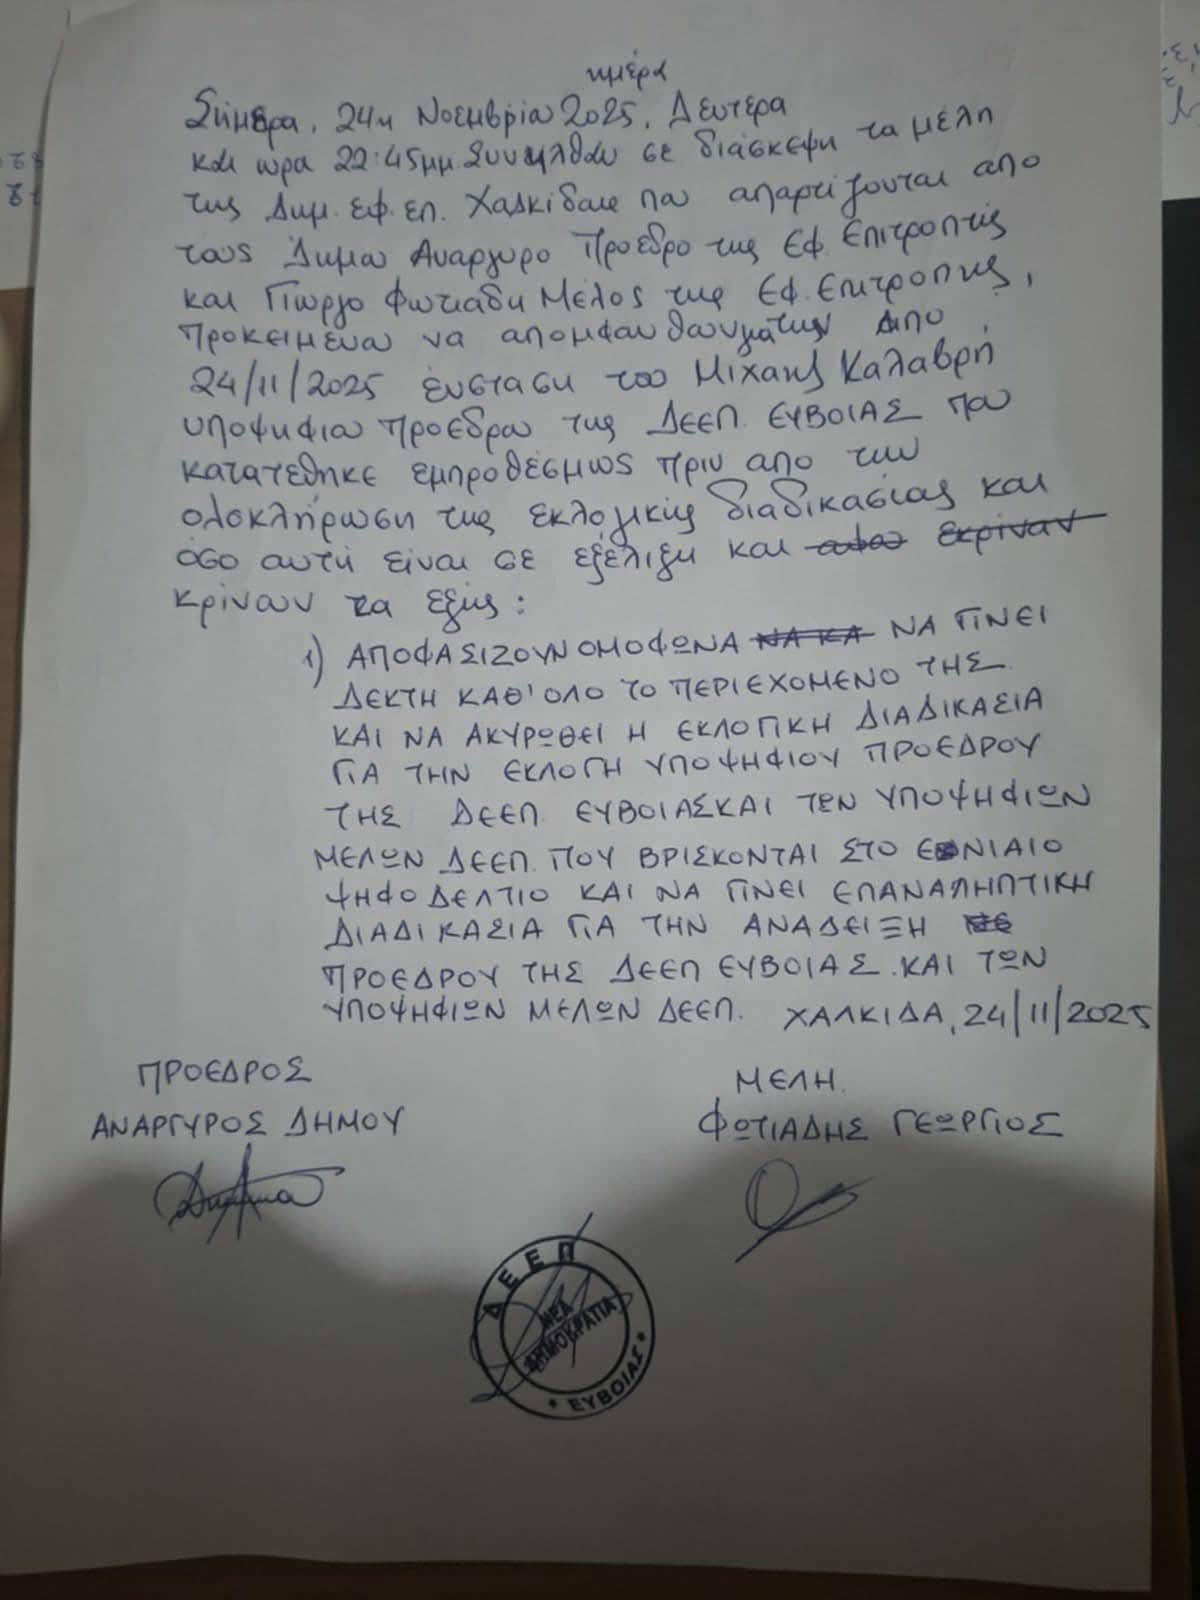 ημέρα
Σήμερα, 24η Νοεμβρίου 2025, Δευτέρα
και ωρα 22:45μμ. Συνήλθαν σε διάσκεψη τα μέλη
της Δημ. εφ. επ. Χαλκίδας που απαρτίζονται απο
τους Δημου Αναργυρο Προεδρο της Εφ. Επιτροπής
και Γιωργο Φωτιαδη Μέλος της Εφ. Επιτροπης,
Προκειμένου να αποφανθουν για την απο
24/11/2025 ένσταση του Μιχαης Καλαβρη
υποψηφιου προεδρου της ΔΕΕΠ. ΕΥΒΟΙΑΣ που
κατατέθηκε εμπροθέσμως πριν απο την
ολοκλήρωση της εκλογικής διαδικασίας και
όσο αυτή είναι σε εξέλιξη και εκρίναν
κρίνουν τα εξής:
1) ΑΠΟΦΑΣΙΖΟΥΝ ΟΜΟΦΩΝΑ ΝΑ ΚΑ ΝΑ ΓΙΝΕΙ
ΔΕΚΤΗ ΚΑΘ' ΟΛΟ ΤΟ ΠΕΡΙΕΧΟΜΕΝΟ ΤΗΣ
ΚΑΙ ΝΑ ΑΚΥΡΩΘΕΙ Η ΕΚΛΟΓΙΚΗ ΔΙΑΔΙΚΑΣΙΑ
ΓΙΑ ΤΗΝ ΕΚΛΟΓΗ ΥΠΟΨΗΦΙΟΥ ΠΡΟΕΔΡΟΥ
ΤΗΣ ΔΕΕΠ. ΕΥΒΟΙΑΣ ΚΑΙ ΤΩΝ ΥΠΟΨΗΦΙΩΝ
ΜΕΛΩΝ ΔΕΕΠ. ΠΟΥ ΒΡΙΣΚΟΝΤΑΙ ΣΤΟ ΕΝΙΑΙΟ
ΨΗΦΟΔΕΛΤΙΟ ΚΑΙ ΝΑ ΓΙΝΕΙ ΕΠΑΝΑΛΗΠΤΙΚΗ
ΔΙΑΔΙΚΑΣΙΑ ΓΙΑ ΤΗΝ ΑΝΑΔΕΙΞΗ
ΠΡΟΕΔΡΟΥ ΤΗΣ ΔΕΕΠ ΕΥΒΟΙΑΣ. ΚΑΙ ΤΩΝ
ΥΠΟΨΗΦΙΩΝ ΜΕΛΩΝ ΔΕΕΠ. ΧΑΛΚΙΔΑ, 24/11/2025
ΠΡΟΕΔΡΟΣ
ΜΕΛΗ.
ΑΝΑΡΓΥΡΟΣ ΔΗΜΟΥ
ΦΩΤΙΑΔΗΣ ΓΕΩΡΓΙΟΣ
ΔΕΕΠ
ΝΕΑ
ΔΗΜΟΚΡΑΤΙΑ
* ΕΥΒΟΙΑΣ *